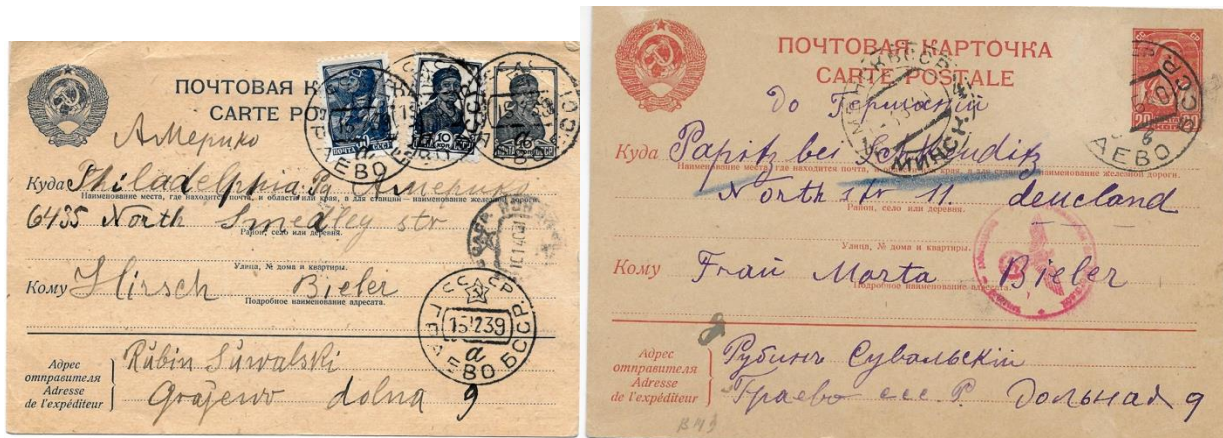 ПОЧТОВАЯ К
CARTE PO
Америко
Куда Philadelphia Pa Америка
Наименование места, где находится почта, и области или края, а для станции – наименование железной дороги.
6435 North Smedley str
Район, село или деревня.
Улица, № дома и квартиры.
Кому Hirsch Bieler
Подробное наименование адресата.
15 12 39
а
БССР
Адрес отправителя
Adresse de l'expéditeur
Rubin Suwalski
Grajewo dolna 9
ПОЧТОВАЯ КАРТОЧКА
CARTE POSTALE
До Германии
20 КОП
МИНСК
Куда Papitz bei Schkeuditz
Наименование места, где находится почта, и области или края, а для станции – наименование железной дороги.
North str 11. deucland
Район, село или деревня.
Улица, № дома и квартиры.
Кому Frau Marta Bieler
Подробное наименование адресата.
Адрес отправителя
Adresse de l'expéditeur
Рубинъ Сувальскій
Граево ссс Р. Дольная 9